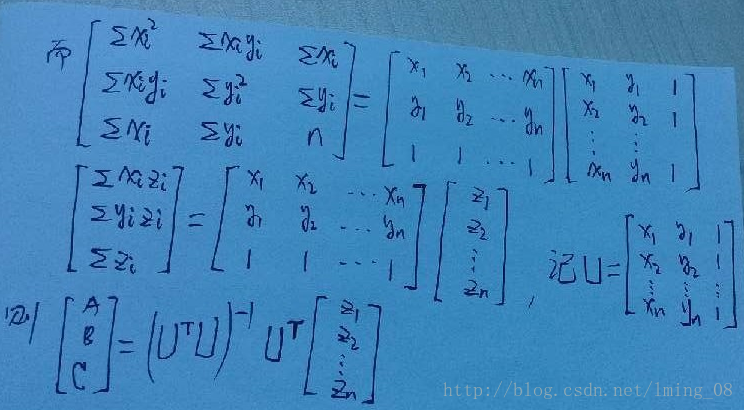 而 [ Σxi² Σxiyi Σxi ; Σxiyi Σyi² Σyi ; Σxi Σyi n ] = [ x1 x2 ⋯ xn ; y1 y2 ⋯ yn ; 1 1 ⋯ 1 ] [ x1 y1 1 ; x2 y2 1 ; ⋮ ⋮ ; xn yn 1 ]
[ Σxizi ; Σyizi ; Σzi ] = [ x1 x2 ⋯ xn ; y1 y2 ⋯ yn ; 1 1 ⋯ 1 ] [ z1 ; z2 ; ⋮ ; zn ] , 记 U = [ x1 y1 1 ; x2 y2 1 ; ⋮ ⋮ ⋮ ; xn yn 1 ]
则 [ A ; B ; C ] = (UᵀU)⁻¹ Uᵀ [ z1 ; z2 ; ⋮ ; zn ]
http://blog.csdn.net/lming_08